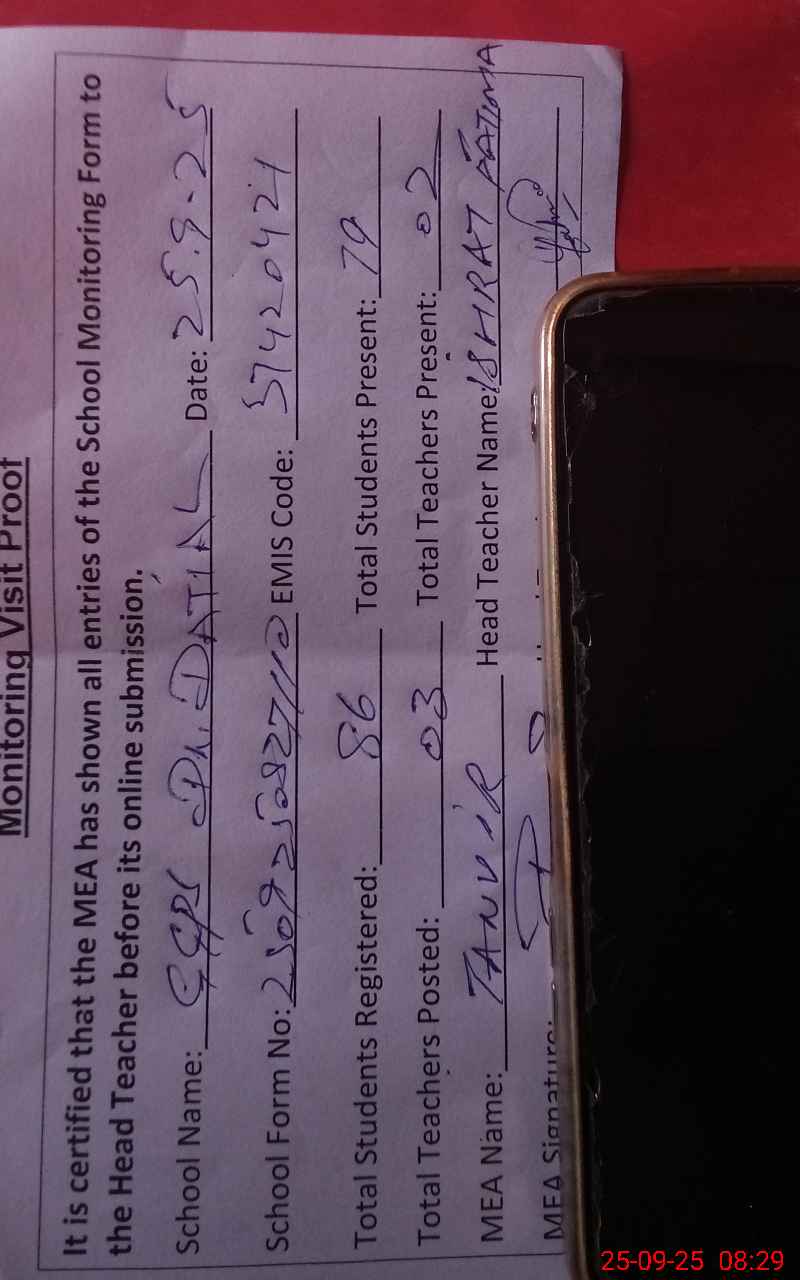 Monitoring Visit Proof
It is certified that the MEA has shown all entries of the School Monitoring Form to
the Head Teacher before its online submission.
School Name: GGPS Dh. DATIAL Date: 25.9-25
School Form No: EMIS Code: 37420421
Total Students Registered: 86 Total Students Present: 79
Total Teachers Posted: 03 Total Teachers Present: 02
MEA Name: TANVIR Head Teacher Name: ISHRAT FATIMA
MEA Signature:
25-09-25 08:29